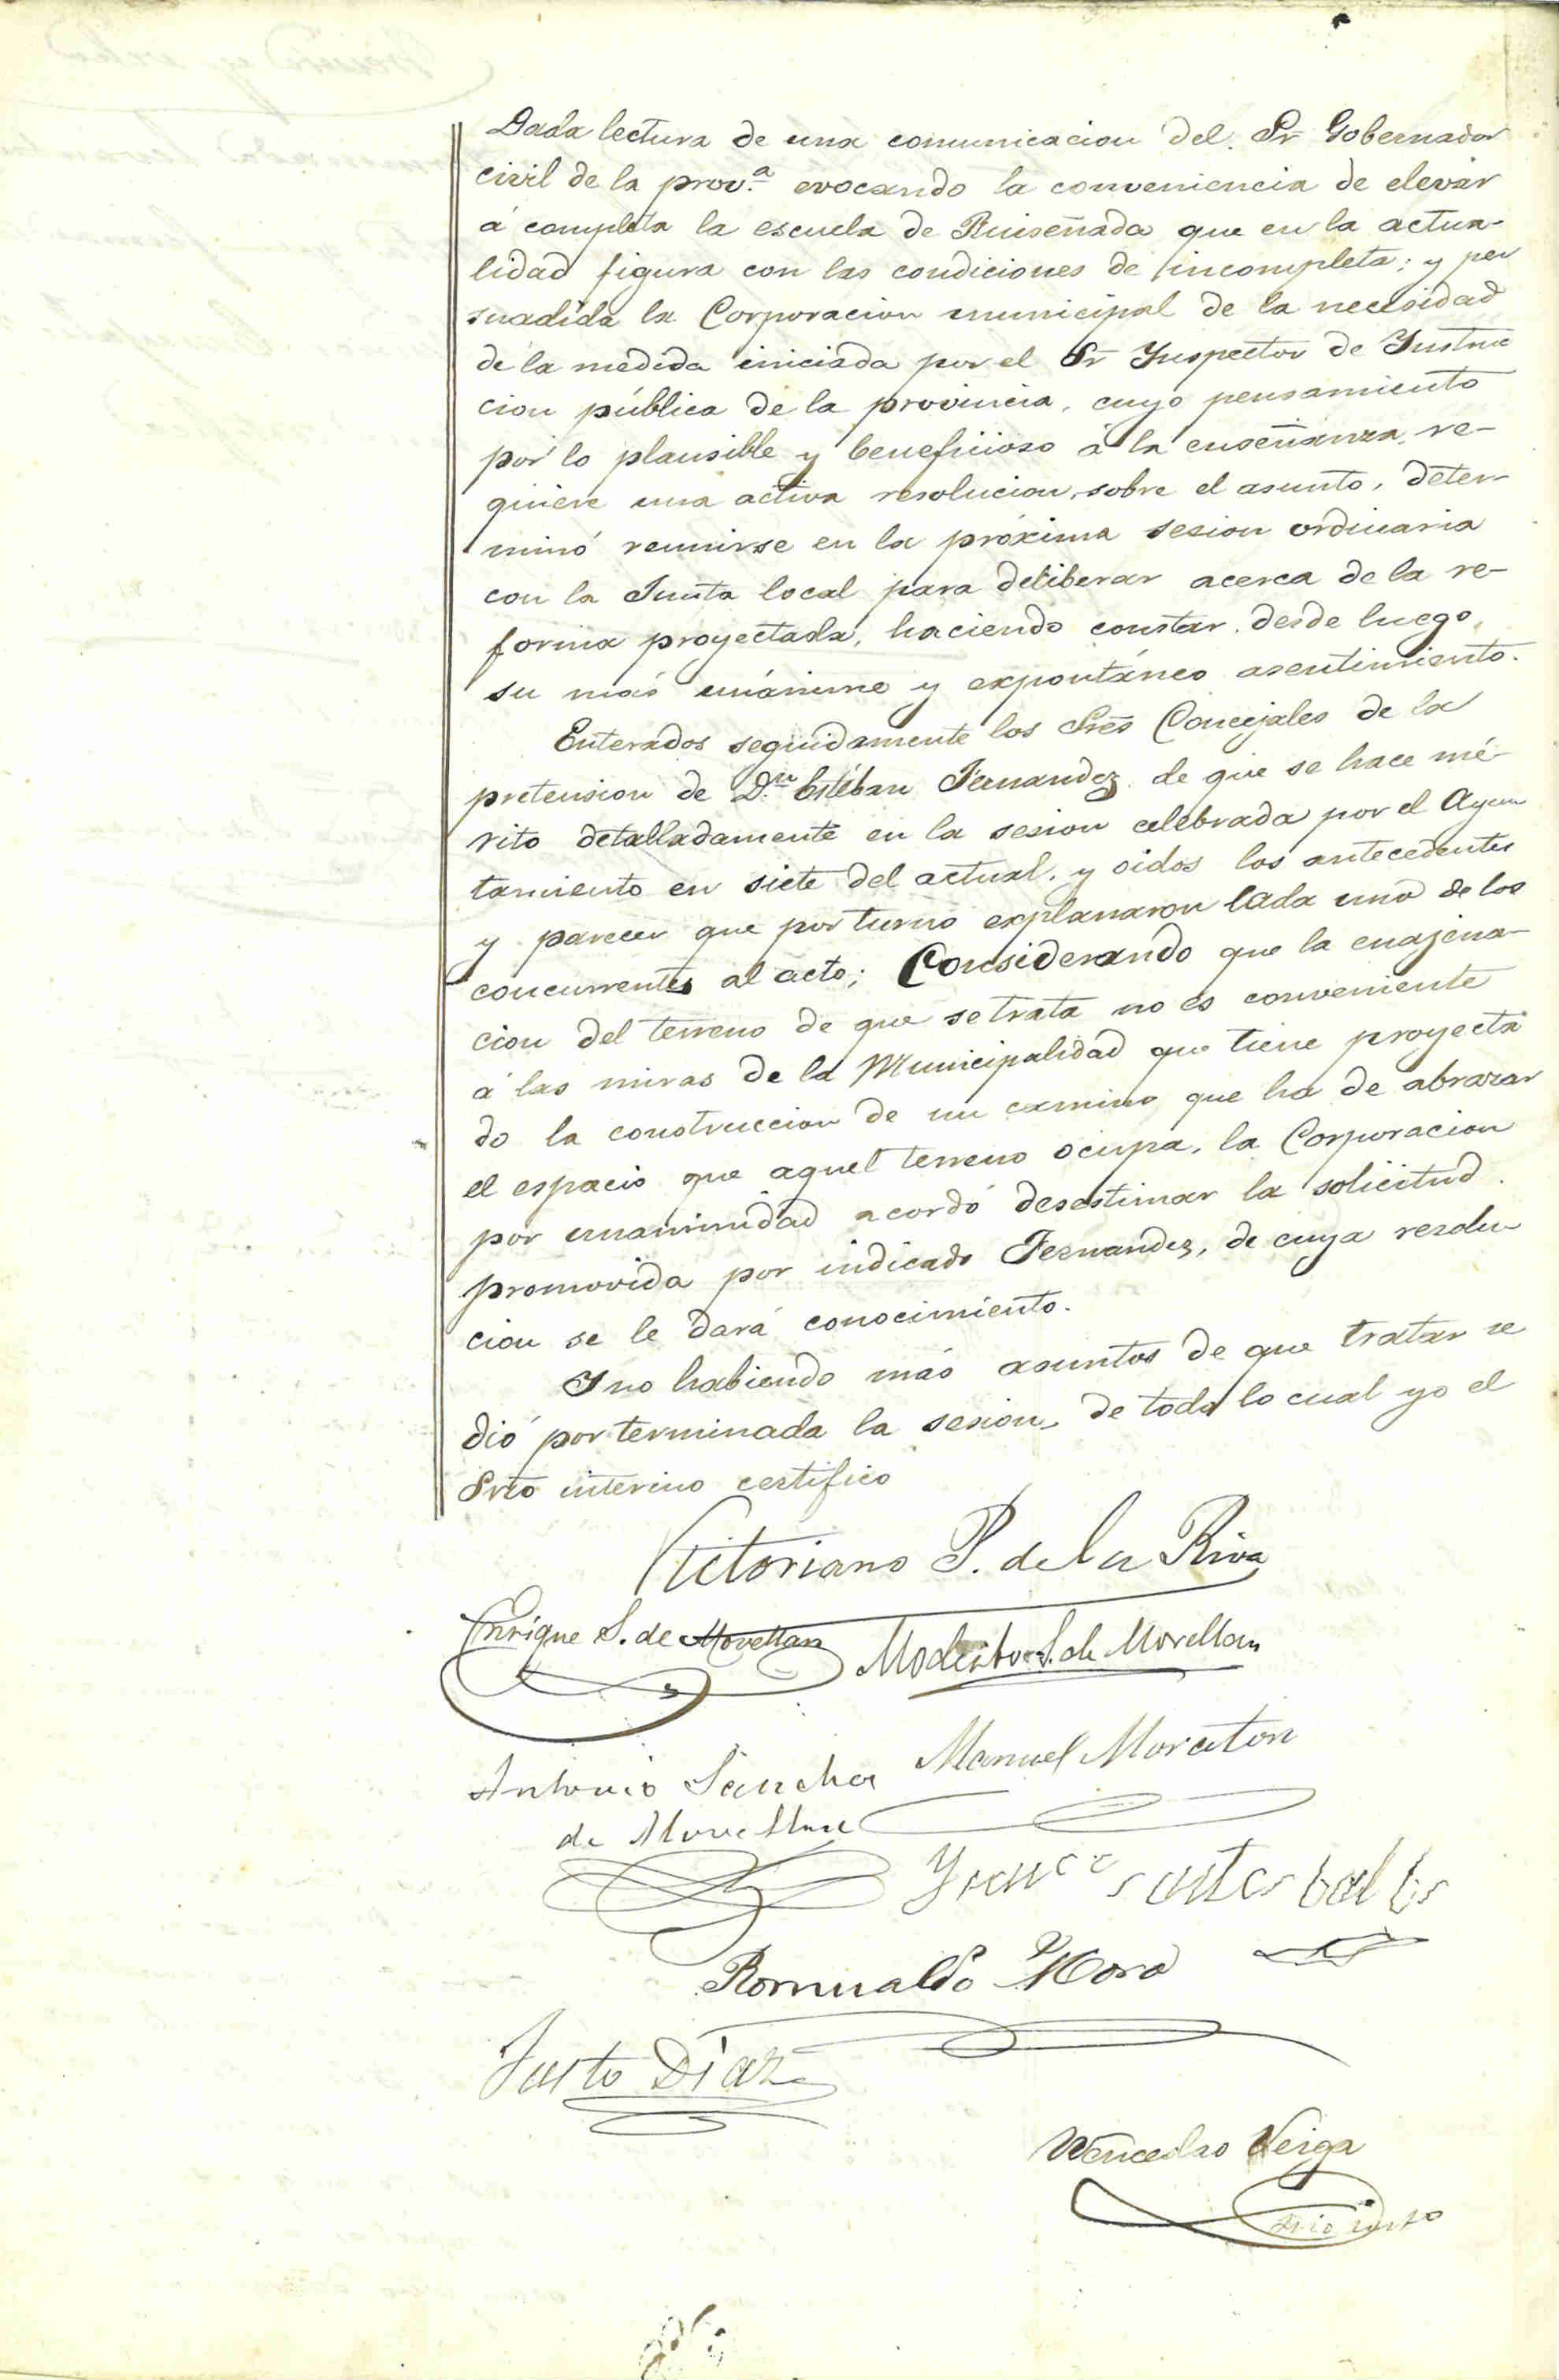 Dada lectura de una comunicacion del Sr Gobernador
civil de la prov.ª evocando la conveniencia de elevar
á completa la escuela de Ruiseñada que en la actua-
lidad figura con las condiciones de incompleta; y per
suadida la Corporacion municipal de la necesidad
de la medida iniciada por el Sr Ynspector de Ynstruc
cion pública de la provincia, cuyo pensamiento
por lo plausible y beneficioso á la enseñanza, re-
quiere una activa resolucion, sobre el asunto, deter-
minó reunirse en la próxima sesion ordinaria
con la Junta local para deliberar acerca de la re-
forma proyectada, haciendo constar, desde luego,
su más unánime y expontáneo asentimiento.
Enterados seguidamente los Sres Concejales de la
pretension de D.n Estéban Fernandez de que se hace mé-
rito detalladamente en la sesion celebrada por el Ayun
tamiento en siete del actual, y oidos los antecedentes
y parecer que por turno explanaron cada uno de los
concurrentes al acto; Considerando que la enajena-
cion del terreno de que se trata no es conveniente
á las miras de la Municipalidad que tiene proyecta
do la construccion de un camino que ha de abrazar
el espacio que aquel terreno ocupa, la Corporacion
por unanimidad acordó desestimar la solicitud
promovida por indicado Fernandez, de cuya resolu-
cion se le dará conocimiento.
Y no habiendo más asuntos de que tratar se
dió por terminada la sesion, de todo lo cual yo el
Srio interino certifico
Victoriano P. de la Riva
Enrique S. de Movellan Modesto S. de Movellan
Antonio Sanchez Manuel Moraton
de Movellan
Romualdo Mora
Justo Diaz
Wenceslao Veiga